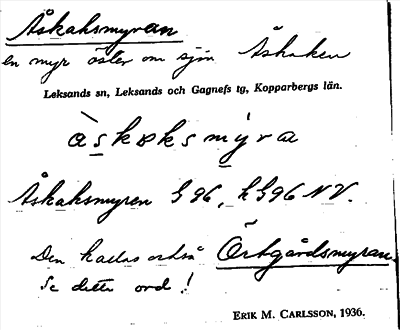 Åskaksmyran
en myr öster om sjön Åskaken
Leksands sn, Leksands och Gagnefs tg, Kopparbergs län.
àskǝksmýra
Åskaksmyren G96, h G96 NV.
Den kallas också Örtgårdsmyran.
Se detta ord!
ERIK M. CARLSSON, 1936.